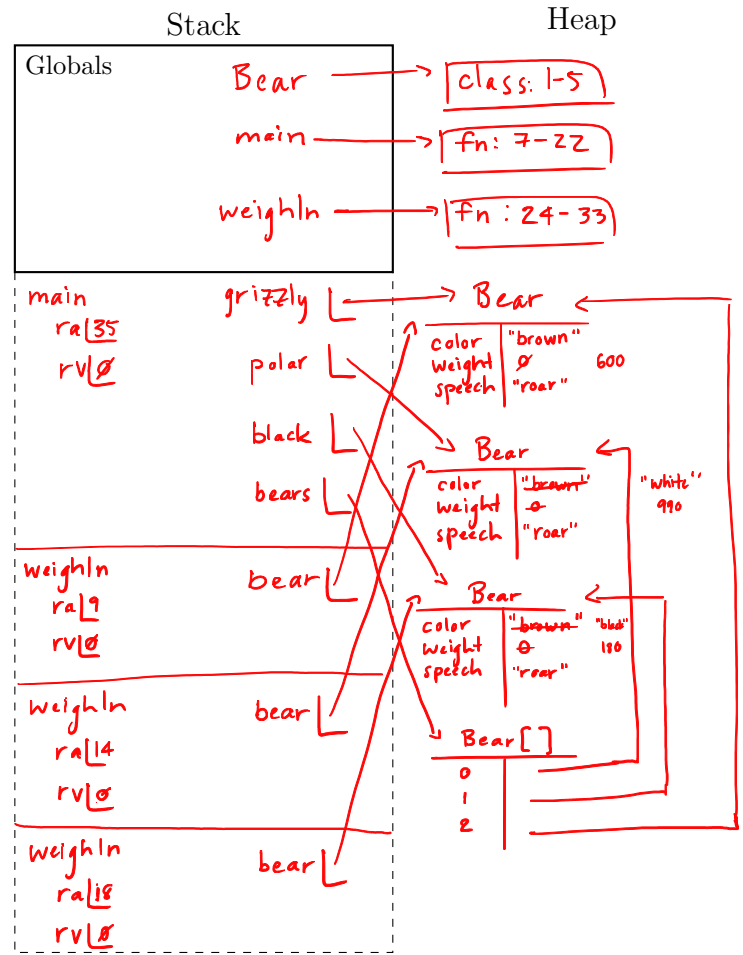 Stack
Heap
Globals
Bear
class: 1-5
main
fn: 7-22
weighIn
fn: 24-33
main
ra 35
rv 0
grizzly
polar
black
bears
Bear
color "brown"
weight 0 600
speech "roar"
Bear
color "brown" "white"
weight 0 990
speech "roar"
Bear
color "brown" "black"
weight 0 180
speech "roar"
Bear[]
0
1
2
weighIn
ra 9
rv 0
bear
weighIn
ra 14
rv 0
bear
weighIn
ra 18
rv 0
bear